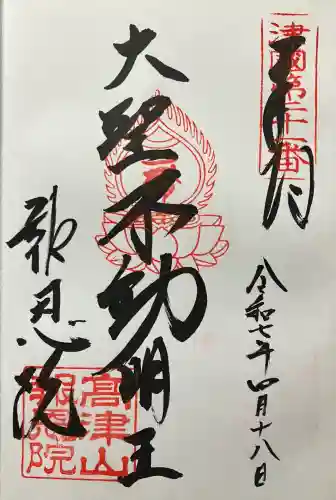 奉拝
摂津國第二十一番
令和七年四月十八日
大聖不動明王
報恩院
高津山
報恩院